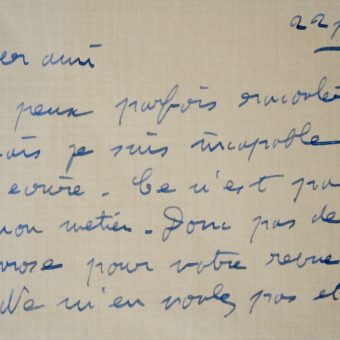 22
er ami
peux parfois
ais je suis incapable
ecrire. Ce n'est pa
mon metier. Donc pas de
rose pour votre revue
Ne m'en voulez pas et